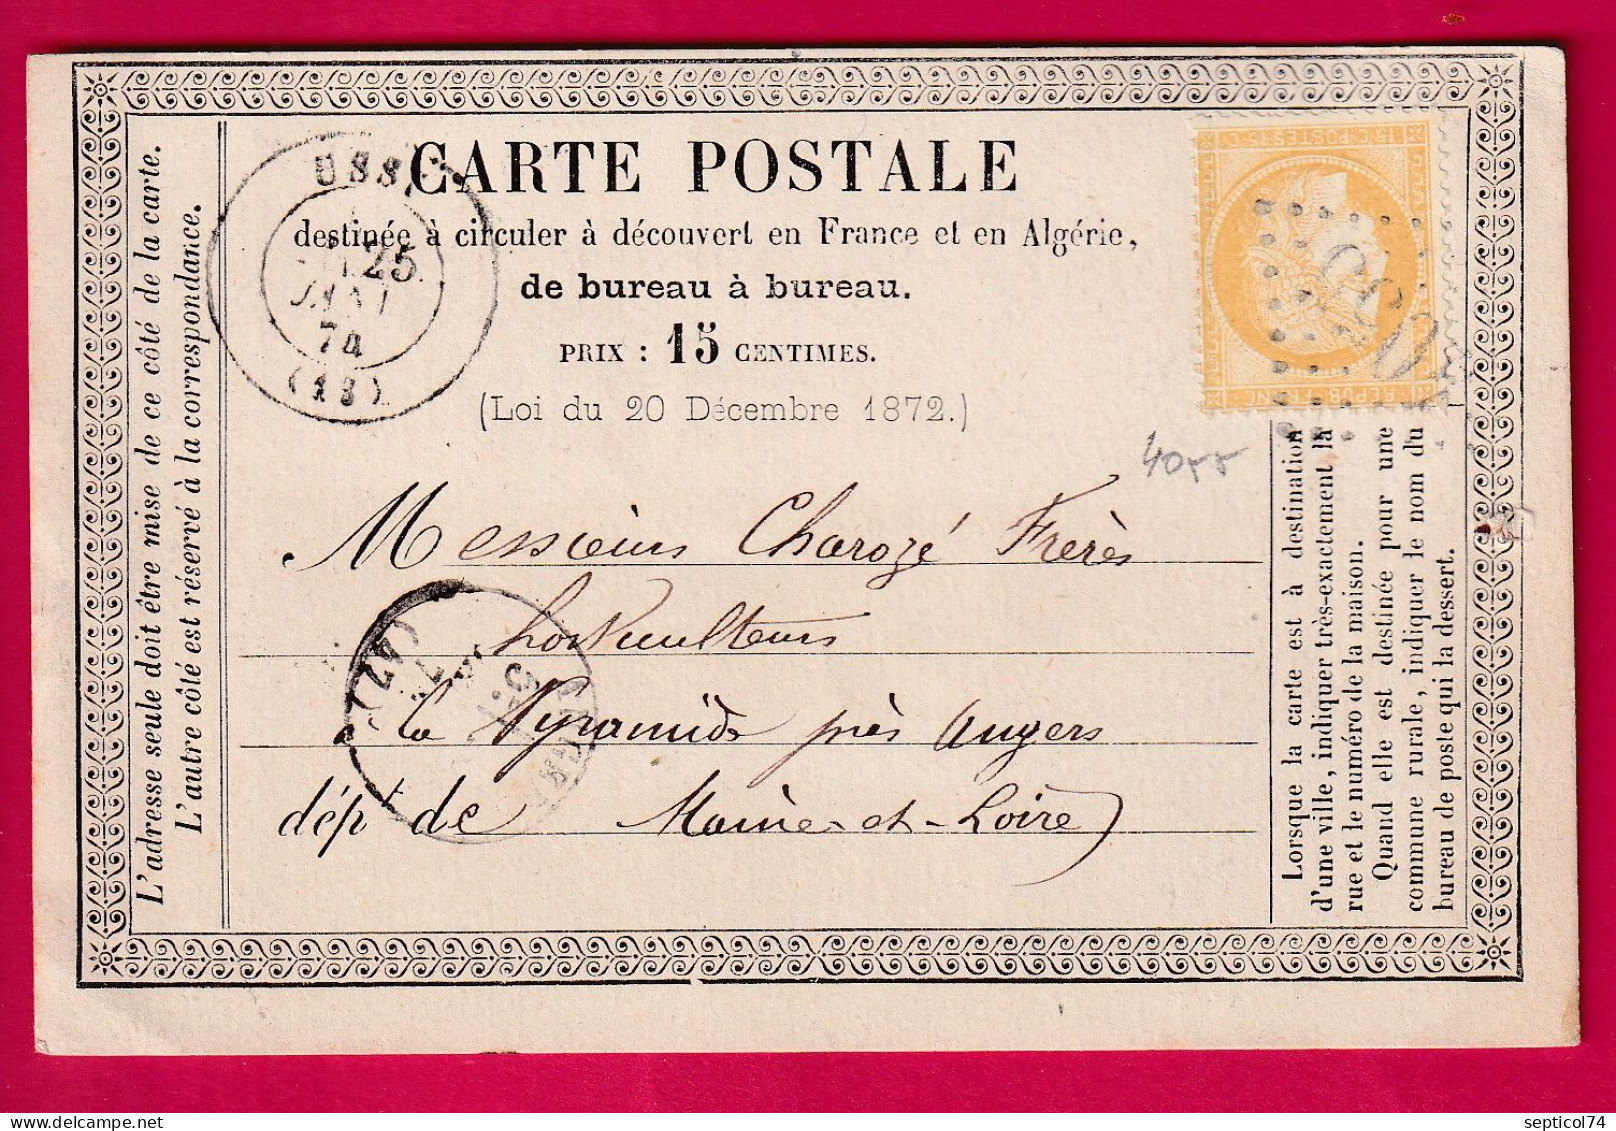 CARTE POSTALE
destinée à circuler à découvert en France et en Algérie,
de bureau à bureau.
PRIX : 15 CENTIMES.
(Loi du 20 Décembre 1872.)
USS
25
JANV
74
(18)
L'adresse seule doit être mise de ce côté de la carte.
L'autre côté est réservé à la correspondance.
15 C. POSTES 15 C.
REPUB FRANC
Messieurs Charozé Frères
horticulteurs
la Pyramide près Angers
dépt de Maine-et-Loire
Lorsque la carte est à destination
d'une ville, indiquer très-exactement la
rue et le numéro de la maison.
Quand elle est destinée pour une
commune rurale, indiquer le nom du
bureau de poste qui la dessert.
septicol74